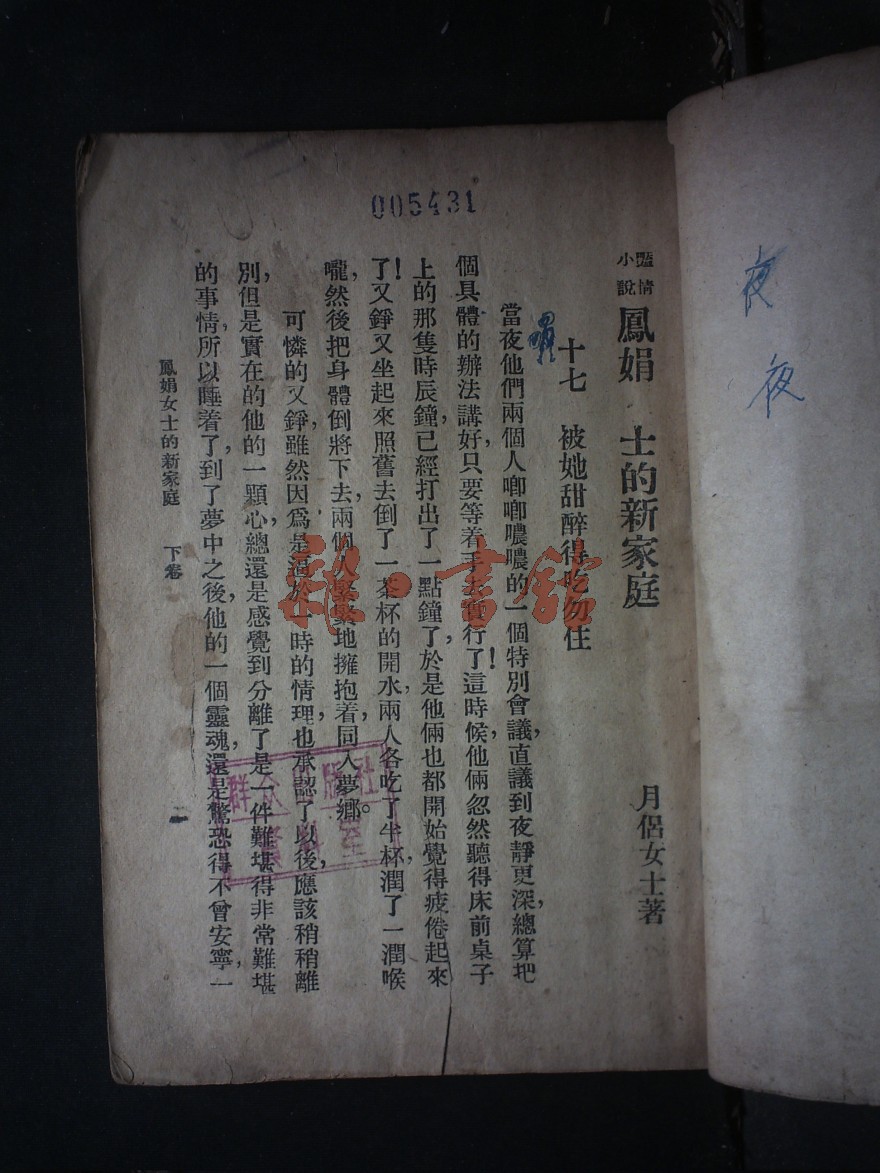 005431
艷情
小說
鳳娟 士的新家庭
月侶女士著
十七 被她甜醉得吃勿住
當夜他們兩個人唧唧噥噥的一個特別會議,直議到夜靜更深,總算把
個具體的辦法講好,只要等着手去實行了!這時候,他倆忽然聽得床前桌子
上的那隻時辰鐘,已經打出了一點鐘了,於是他倆也都開始覺得疲倦起來
了!又錚又坐起來照舊去倒了一茶杯的開水,兩人各吃了半杯,潤了一潤喉
嚨,然後把身體倒將下去,兩個人緊緊地擁抱着,同入夢鄉。
可憐的又錚,雖然因爲是逼於一時的情理,也承認了以後,應該稍稍離
別,但是實在的他的一顆心,總還是感覺到分離了是一件難堪得非常難堪
的事情,所以睡着了,到了夢中之後,他的一個靈魂,還是驚恐得不曾安寧,一
鳳娟女士的新家庭 下卷
一
夜
夜
群众出版社
雜·書館